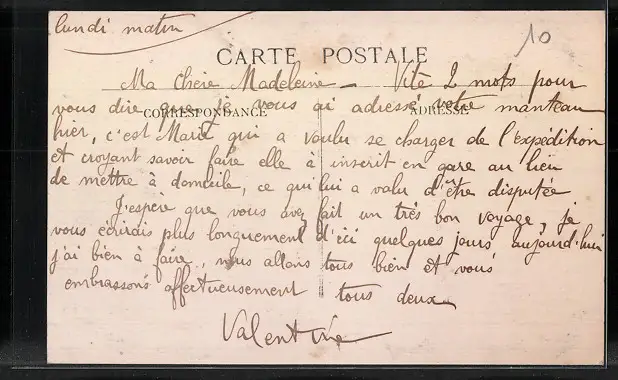 lundi matin
10
CARTE POSTALE
Ma chère Madeleine — Vite 2 mots pour
vous dire que je vous ai adressé votre manteau
CORRESPONDANCE ADRESSE
hier, c'est Marie qui a voulu se charger de l'expédition
et croyant savoir faire elle à inscrit en gare au lieu
de mettre à domicile, ce qui lui a valu d'être disputée
J'espère que vous avez fait un très bon voyage, je
vous écrirais plus longuement d'ici quelques jours aujourd'hui
j'ai bien à faire, nous allons tous bien et vous
embrassons affectueusement tous deux
Valentine